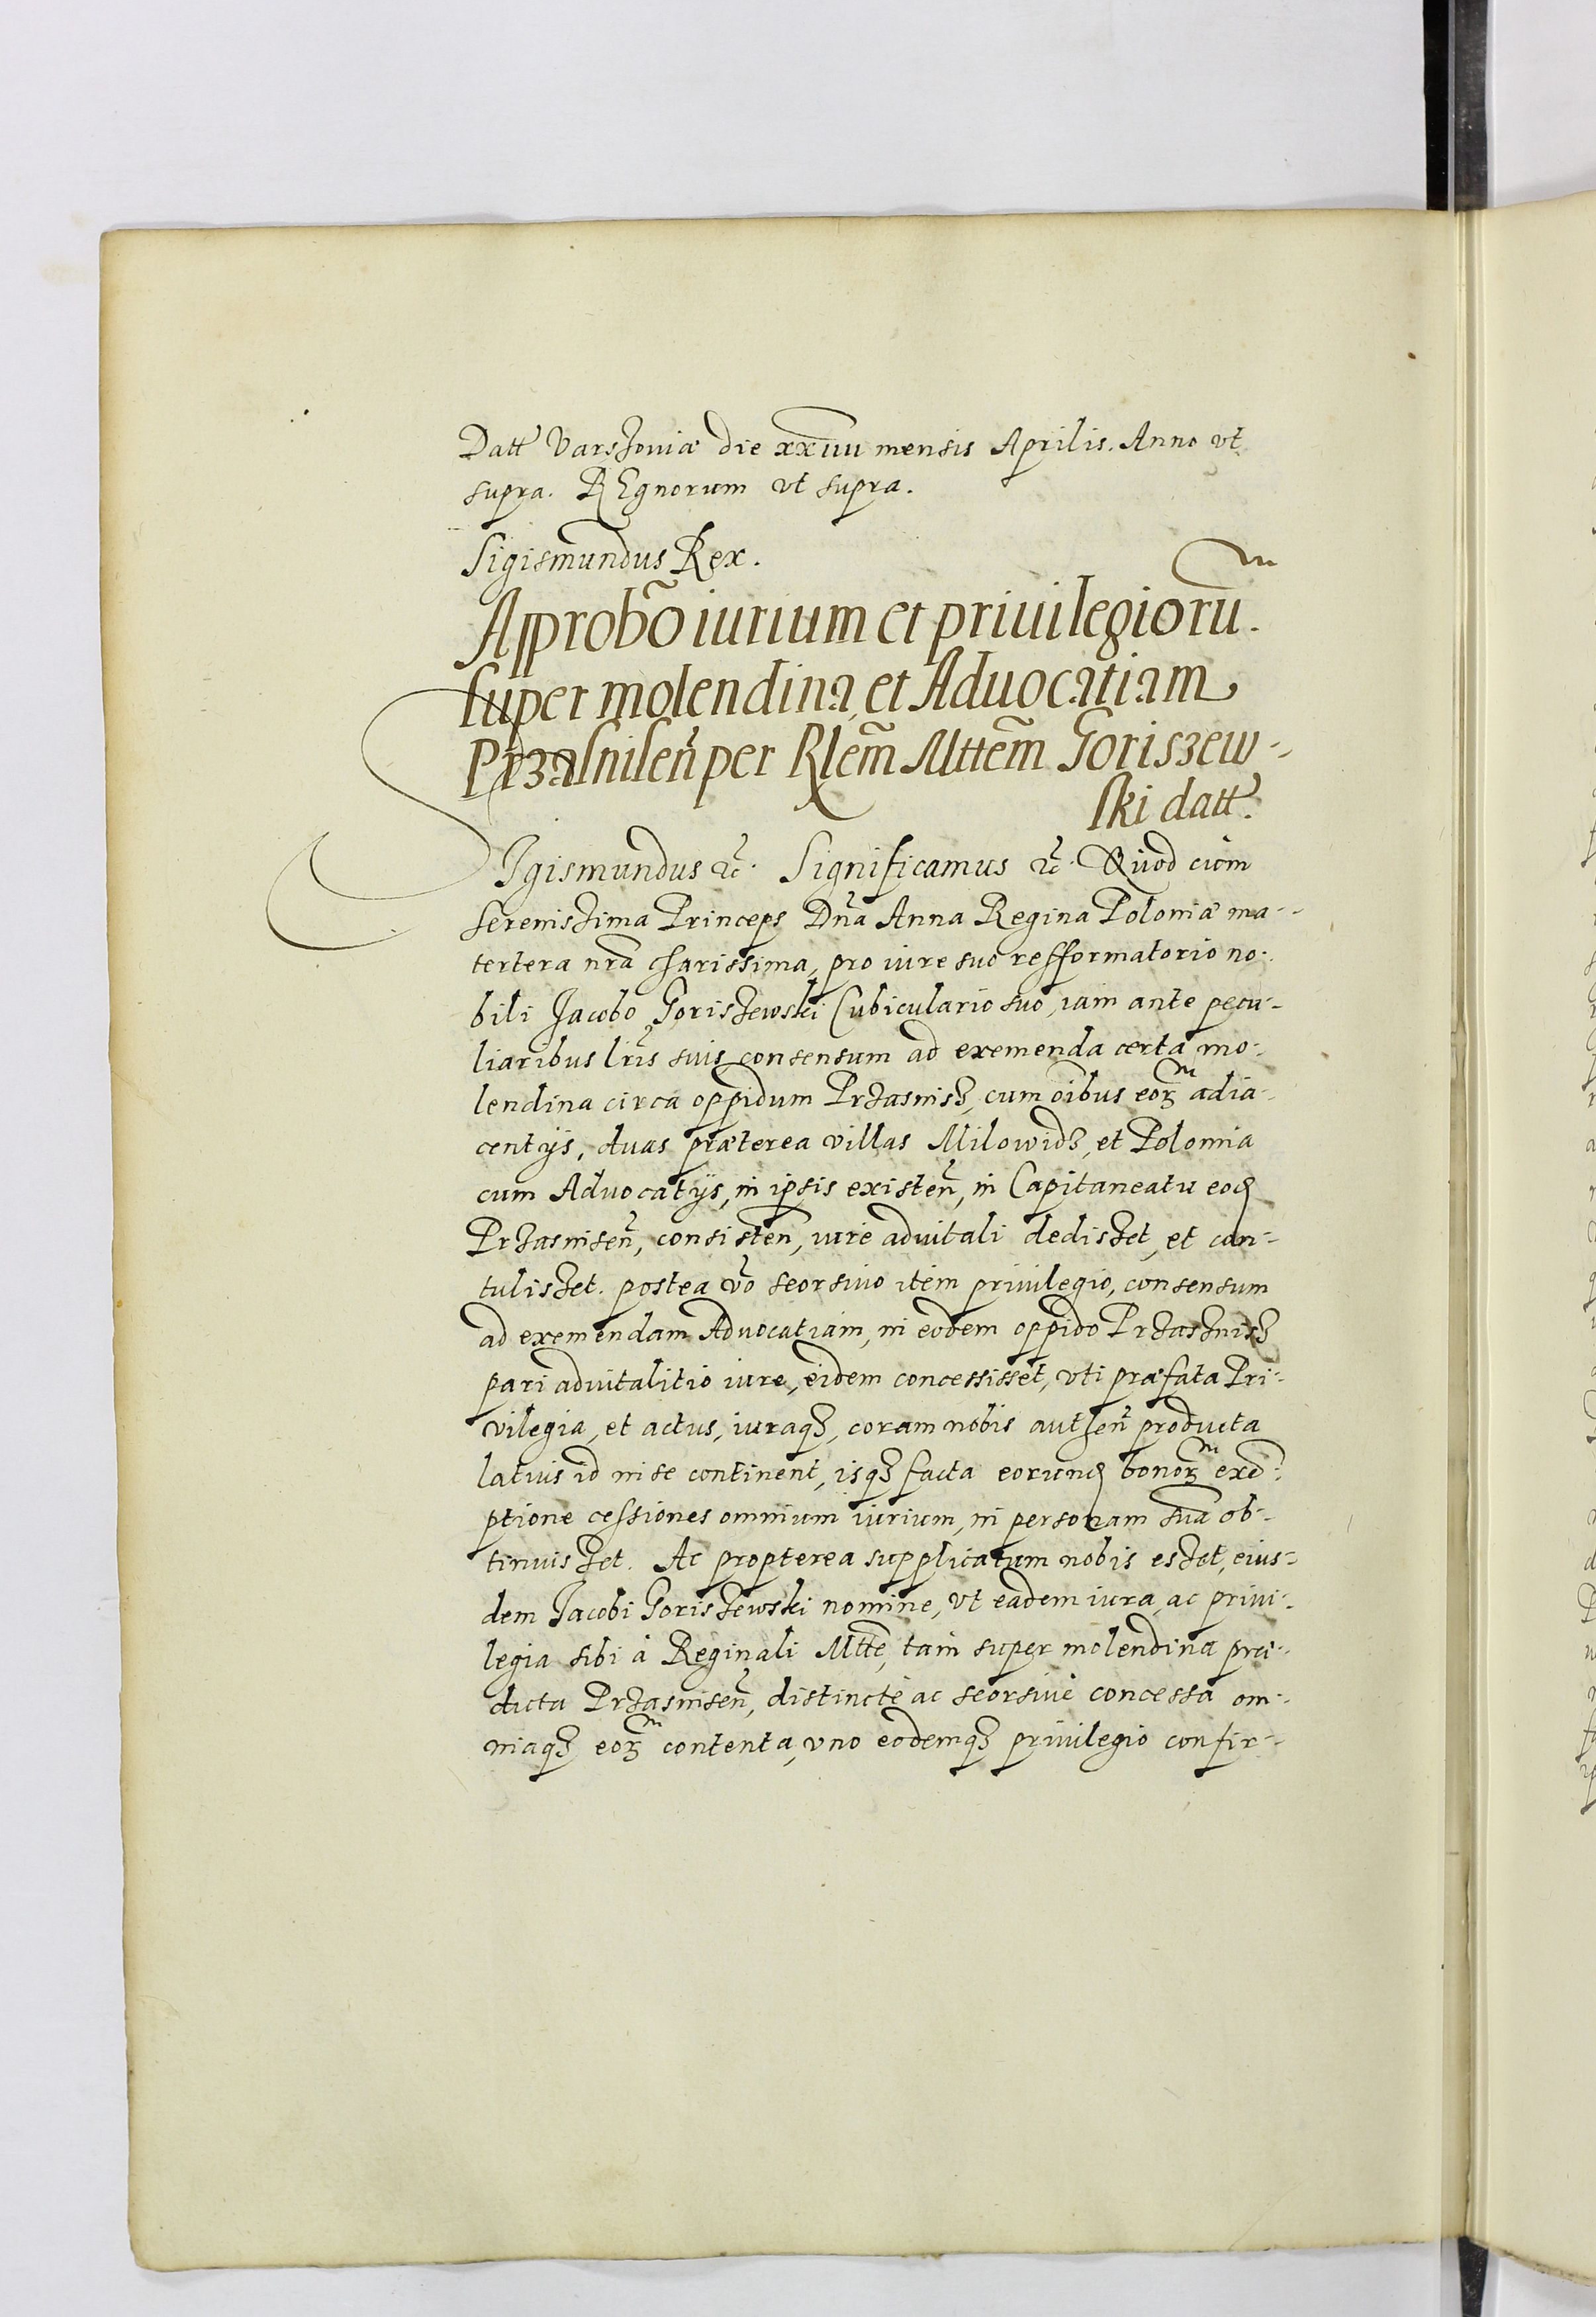 Datt Varszoviæ die xxviiii mensis Aprilis. Anno vt
supra. REgnorum vt supra.
Sigismundus Rex.
Approbão iurium et priuilegiorũ.
super molendina, et Aduocatiam
Przasnisen̄ per Rlem̃ Mttem̃ Goriszew-
ski datt.
SIgismundus &c. Significamus &c. Quod cum
serenissima Princeps Dña Anna Regina Poloniæ ma-
tertera nrã charissima, pro iure suo refformatorio no-
bili Jacobo Goriszewski Cubiculario suo, iam ante pecu-
liaribus lris suis consensum ad exemenda certa mo-
lendina circa oppidum Przasnisz, cum oĩbus eorꝫ adia-
centijs, duas præterea villas Milowidz, et Polonia
cum Aduocatijs, in ipsis existen̄, in Capitaneatu eod
Przasnisen̄, consisten̄, iure aduitali dedisset, et con-
tulisset. postea vo seorsiuo item priuilegio, consensum
ad exemendam Aduocatiam, in eodem oppido Przasznisz
pari aduitalitio iure, eidem concessisset, vti præfata Pri-
vilegia, et actus, iuraqꝫ, coram nobis authen̄ producta
latius id in se continent, isqꝫ facta eorund bonorꝫ exe-
ptione cessiones omnium iurium, in personam suã ob-
tinuisset. Ac propterea supplicatum nobis esset, eius-
dem Jacobi Goriszewski nomine, vt eadem iura, ac priui-
legia sibi à Reginali Mtte, tam super molendina præ-
dicta Przasnisen̄, distinctè ac seorsiuè concessa om-
niaqꝫ eorꝫ contenta, vno eodemqꝫ priuilegio confir-